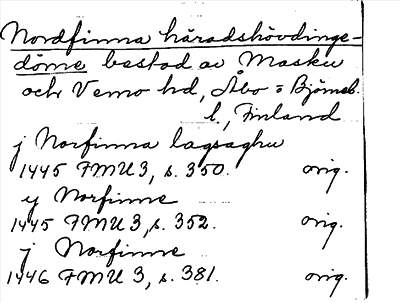 Nordfinna häradshövdinge-
döme bestod av Masku
och Vemo hd, Åbo = Björneb.
l., Finland
j Norfinna lagsaghu
1445 FMU 3, s. 350. orig.
y Norfinne
1445 FMU 3, s. 352. orig.
j Norfinne
1446 FMU 3, s. 381. orig.